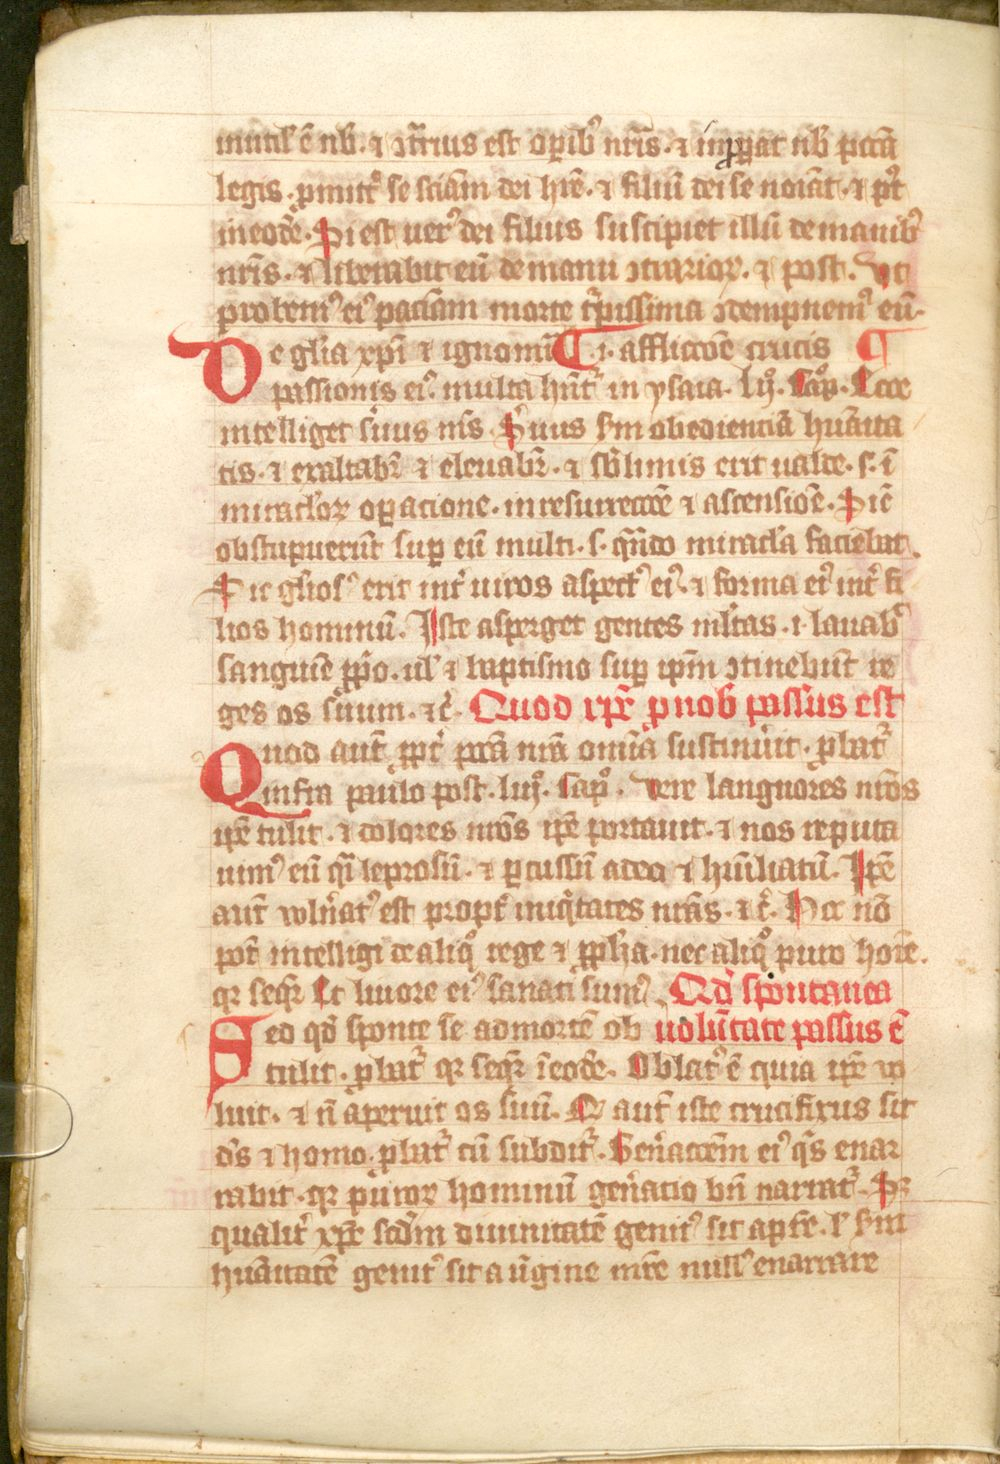 inutil' ē nb̄. ⁊ ↄt̄rius est opib᷒ nr̄is. ⁊ inpꝑat nb̄ pccā
legis. ꝓmittͥ se sciām dei hr̄e. ⁊ filiū dei se noiāt. ⁊ pt᷒
in eodē. Si est uer᷒ dei filius suscipiet illū de manib᷒
nr̄is. ⁊ liberabit eū de manu ↄtrarioꝝ. ⁊ post. Vt
probem᷒ ei᷒ paciām morte tͥpissima ↄdempnem᷒ eū.
De gl̄ia xp̄i ⁊ ignomī ¶ .i. afflicc̄oē crucis ¶
passionis ei᷒. multa hn̄tͬ in ysaia. lij°. cap°. Ecce
intelliget suus ms̄. Suus s̄m obedienciā hūaīta
tis. ⁊ exaltabr̄ ⁊ eleuabr̄. ⁊ sb̄limis erit ualde. s. ī
miraclōꝝ oꝑacione. in resurreccōe ⁊ ascensiōe. Sic̄
obstupuerūt suꝑ eū multi. s. qn̄do miracl'a faciebat.
Sic gl̄ios᷒ erit int̄ uiros aspect᷒ ei᷒. ⁊ forma ei᷒ int̄ fi
lios hominū. Iste asperget gentes ml̄tas. i. lauab᷒
sanguīe ꝓp̄o. ul' ⁊ baptismo suꝑ ip̄m ↄtinebūt re
ges os suum. ⁊c̄. Quod xp̄c ꝓ nob̄ passus est
Quod aut̄ ꝓpt̄ pccā nr̄a omīa sustinuit. ꝓbatͬ
infra paulo post. liij°. cap°. Vere languores nr̄os
ip̄e tulit. ⁊ dolores nr̄os ip̄e portauit. ⁊ nos reputa
uim᷒ eū qͣi leprosū. ⁊ ꝑcussū a deo ⁊ hūiliatū. Ip̄e
aut̄ wln̄at᷒ est propt̄ iniqͥtates nr̄as. ⁊c̄. Hec nō
pōt intelligi de aliqͦ rege ⁊ ꝓph̄a. nec aliqͦ puro hoīe.
qꝛ seqͬ. Et liuore ei᷒ sanati sum᷒. Qd̄ spontanea
Sed qd̄ sponte se ad mortē ob uolūtate passus ē
tulit. ꝓbatͬ qꝛ seqͬ ī eodē. Oblat᷒ ē quia ip̄e uo
luit. ⁊ n̄ aperuit os suū. Qd̄ aut̄ iste crucifixus sit
ds̄ ⁊ homo. ꝓbatͬ cū subditͬ. Gen̄accōem ei᷒ qͥs enar
rabit. qꝛ puroꝝ hominū gen̄acio bn̄ narratͬ. Sꝫ
qualit̄ xp̄c scd̄m diuinitatē genit᷒ sit a pr̄e. l' s̄m
hūaītatē genit᷒ sit a uͥgine mr̄e null᷒ enarrare